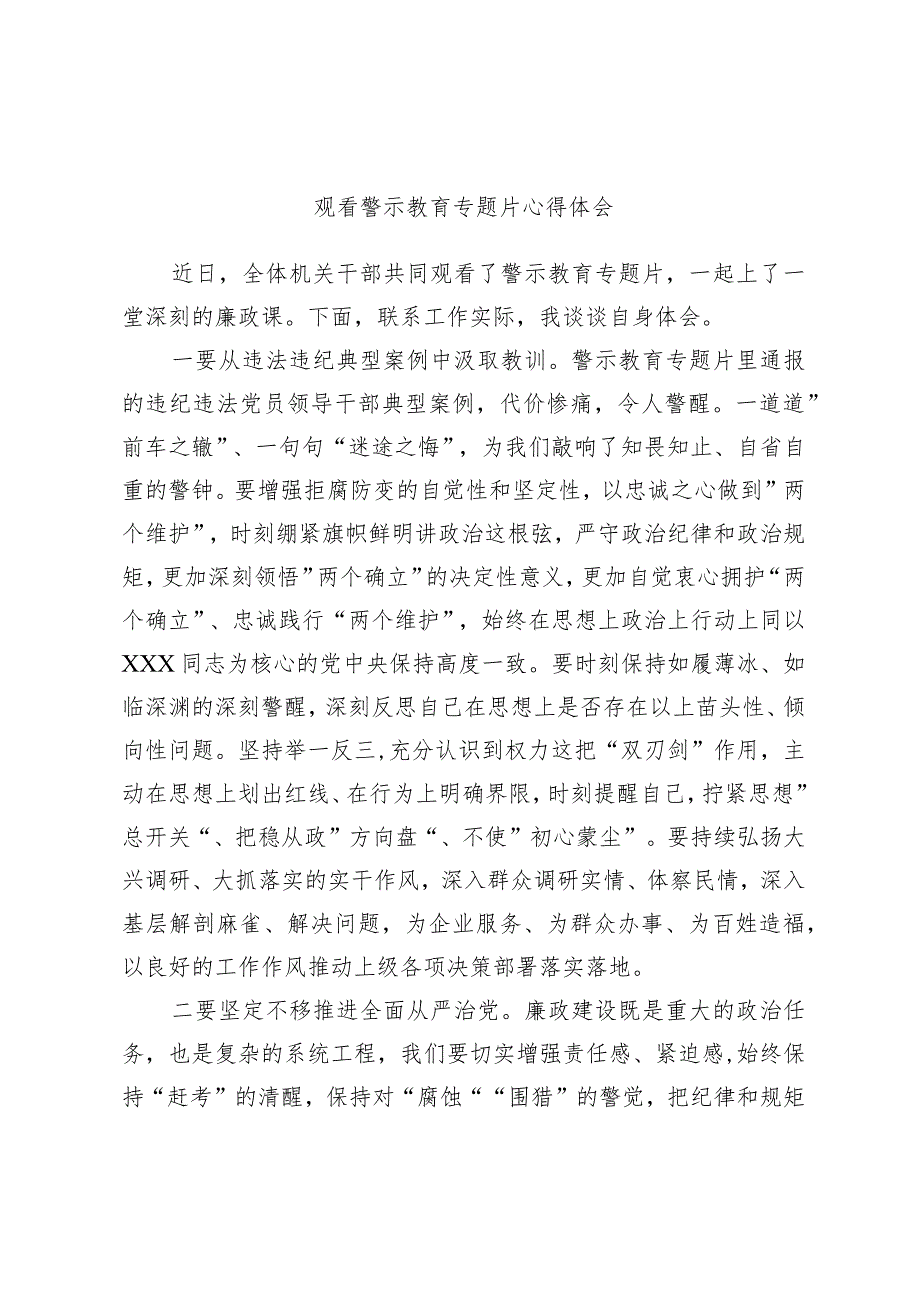 观看警示教育专题片心得体会
近日，全体机关干部共同观看了警示教育专题片，一起上了一
堂深刻的廉政课。下面，联系工作实际，我谈谈自身体会。
一要从违法违纪典型案例中汲取教训。警示教育专题片里通报
的违纪违法党员领导干部典型案例，代价惨痛，令人警醒。一道道”
前车之辙”、一句句“迷途之悔”，为我们敲响了知畏知止、自省自
重的警钟。要增强拒腐防变的自觉性和坚定性，以忠诚之心做到”两
个维护”，时刻绷紧旗帜鲜明讲政治这根弦，严守政治纪律和政治规
矩，更加深刻领悟”两个确立”的决定性意义，更加自觉衷心拥护“两
个确立”、忠诚践行“两个维护”，始终在思想上政治上行动上同以
XXX同志为核心的党中央保持高度一致。要时刻保持如履薄冰、如
临深渊的深刻警醒，深刻反思自己在思想上是否存在以上苗头性、倾
向性问题。坚持举一反三,充分认识到权力这把“双刃剑”作用，主
动在思想上划出红线、在行为上明确界限，时刻提醒自己，拧紧思想”
总开关“、把稳从政”方向盘“、不使”初心蒙尘”。要持续弘扬大
兴调研、大抓落实的实干作风，深入群众调研实情、体察民情，深入
基层解剖麻雀、解决问题，为企业服务、为群众办事、为百姓造福，
以良好的工作作风推动上级各项决策部署落实落地。
二要坚定不移推进全面从严治党。廉政建设既是重大的政治任
务，也是复杂的系统工程，我们要切实增强责任感、紧迫感,始终保
持“赶考”的清醒，保持对“腐蚀““围猎”的警觉，把纪律和规矩